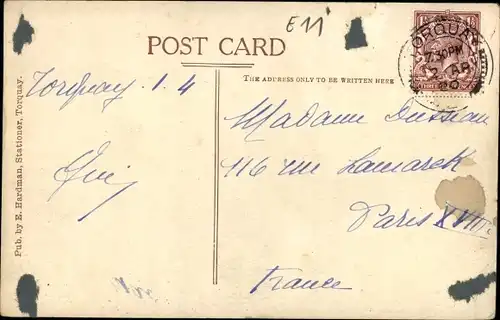 E11
POST CARD
THE ADDRESS ONLY TO BE WRITTEN HERE
TORQUAY
7.30PM
AP
20
Torquay 1.4
Madame
116 rue Lamarck
Paris XVIII
France
Pub. by E. Hardman, Stationer, Torquay.